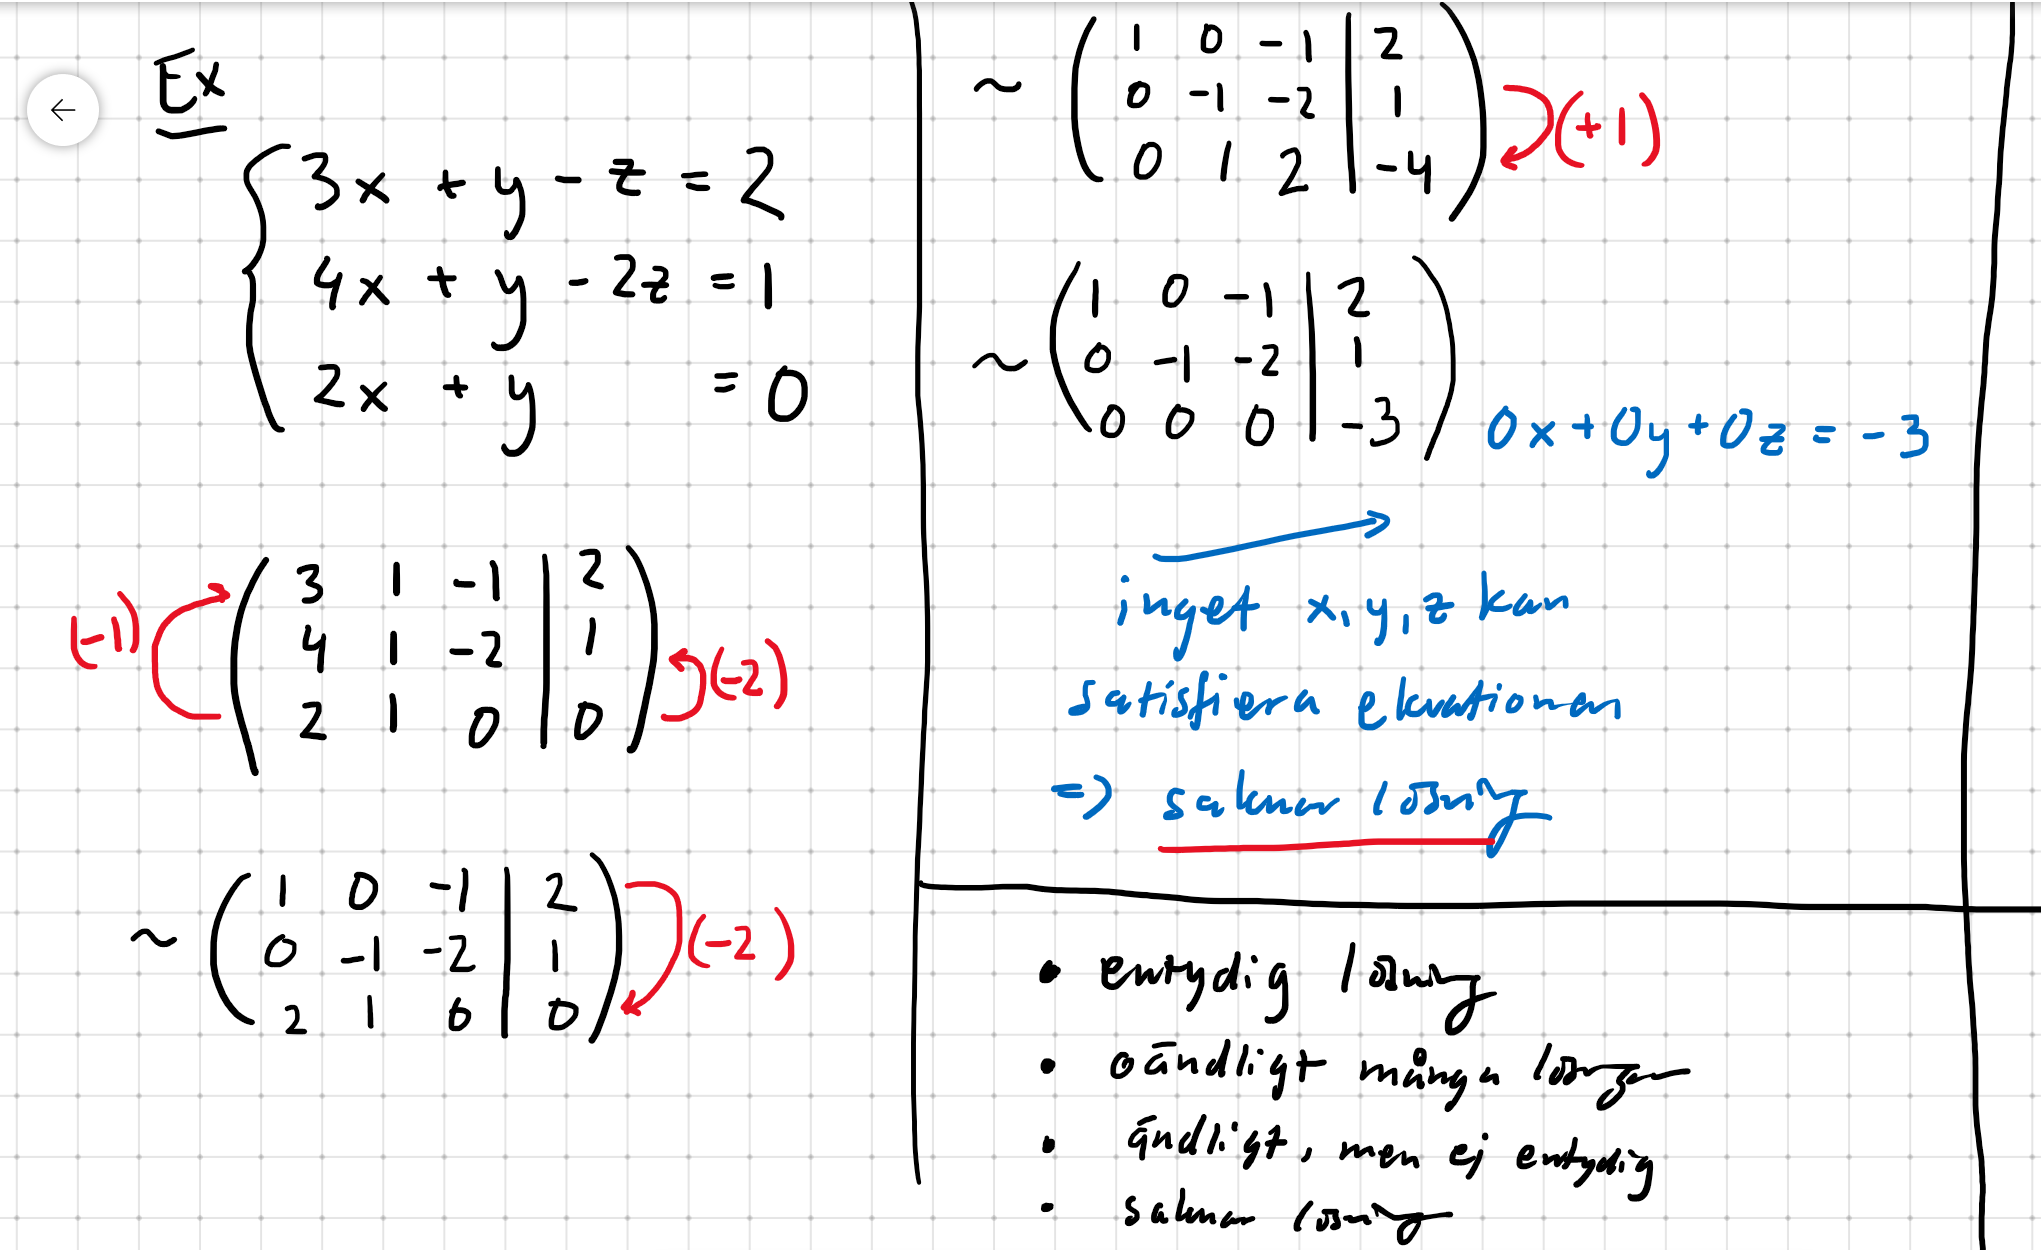 Ex
3x + y - z = 2
4x + y - 2z = 1
2x + y = 0
(-1) ( 3 1 -1 | 2
4 1 -2 | 1
2 1 0 | 0 ) (-2)
~ ( 1 0 -1 | 2
0 -1 -2 | 1
2 1 0 | 0 ) (-2)
~ ( 1 0 -1 | 2
0 -1 -2 | 1
0 1 2 | -4 ) (+1)
~ ( 1 0 -1 | 2
0 -1 -2 | 1
0 0 0 | -3 ) 0x + 0y + 0z = -3
inget x, y, z kan
satisfiera ekvationen
=> saknar lösning
• entydig lösning
• oändligt många lösningar
• ändligt, men ej entydig
• saknar lösning